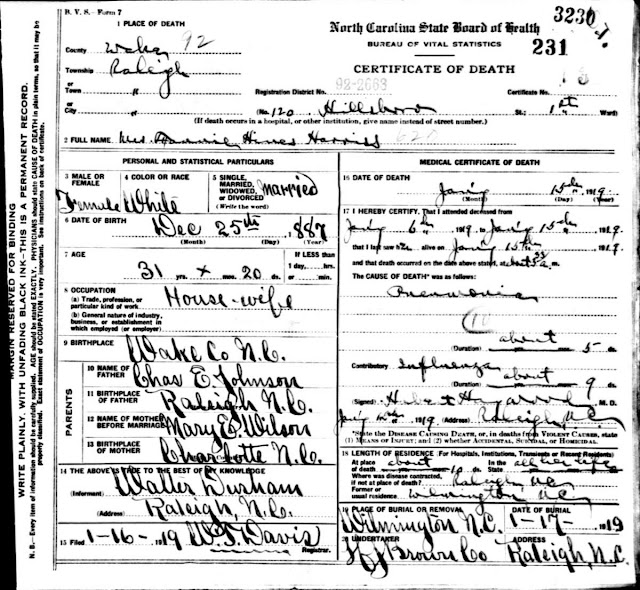 R. V. S.—Form 7
3230
1 PLACE OF DEATH
North Carolina State Board of Health
BUREAU OF VITAL STATISTICS
231
CERTIFICATE OF DEATH
County Wake 92
Township Raleigh
or
Town
or
City
Registration District No. 92-2663
Certificate No.
(No. 120 Hillsboro St.; 1st Ward)
(If death occurs in a hospital, or other institution, give name instead of street number.)
2 FULL NAME Mrs. Hines Harriss
PERSONAL AND STATISTICAL PARTICULARS
3 MALE OR FEMALE
Female
4 COLOR OR RACE
White
5 SINGLE, MARRIED, WIDOWED, OR DIVORCED
(Write the word)
Married
6 DATE OF BIRTH
Dec 25th, 1887
(Month) (Day) (Year)
7 AGE
31 yrs. x mos. 20 ds.
If LESS than
1 day,....hrs.
or........min.
8 OCCUPATION
(a) Trade, profession, or
particular kind of work
House-wife
(b) General nature of industry,
business, or establishment in
which employed (or employer)
9 BIRTHPLACE
Wake Co N.C.
PARENTS
10 NAME OF FATHER
Chas E Johnson
11 BIRTHPLACE OF FATHER
Raleigh N.C.
12 NAME OF MOTHER BEFORE MARRIAGE
Mary E Wilson
13 BIRTHPLACE OF MOTHER
Charlotte N.C.
14 THE ABOVE IS TRUE TO THE BEST OF MY KNOWLEDGE
(Informant) Walter Durham
(Address) Raleigh, N.C.
15 Filed 1-16-1919 W. T. Davis
Registrar.
MEDICAL CERTIFICATE OF DEATH
16 DATE OF DEATH
15th 1919
(Month) (Day) (Year)
17 I HEREBY CERTIFY, That I attended deceased from
6th 1919 to 15th 1919
that I last saw alive on 15th 1919
and that death occurred on the date above stated, at m.
The CAUSE OF DEATH* was as follows:
Pneumonia
about
(Duration) 5 ds.
Contributory Influenza
about
(Duration) 9 ds.
(Signed) M. D.
1919 (Address) Raleigh, N.C.
*State the DISEASE CAUSING DEATH, or, in deaths from VIOLENT CAUSES, state
(1) MEANS OF INJURY; and (2) whether ACCIDENTAL, SUICIDAL, or HOMICIDAL.
18 LENGTH OF RESIDENCE (For Hospitals, Institutions, Transients or Recent Residents)
At place
of death about 10 ds.
In the
State all her life
Where was disease contracted,
if not at place of death? Raleigh N.C.
Former or
usual residence Wilmington N.C.
19 PLACE OF BURIAL OR REMOVAL
Wilmington N.C.
DATE OF BURIAL
1-17-1919
20 UNDERTAKER
H J Brown Co
ADDRESS
Raleigh, N.C.
MARGIN RESERVED FOR BINDING
WRITE PLAINLY, WITH UNFADING BLACK INK—THIS IS A PERMANENT RECORD.
N. B.—Every item of information should be carefully supplied. AGE should be stated EXACTLY. PHYSICIANS should state CAUSE OF DEATH in plain terms, so that it may be
properly classified. Exact statement of OCCUPATION is very important. See instructions on back of certificate.